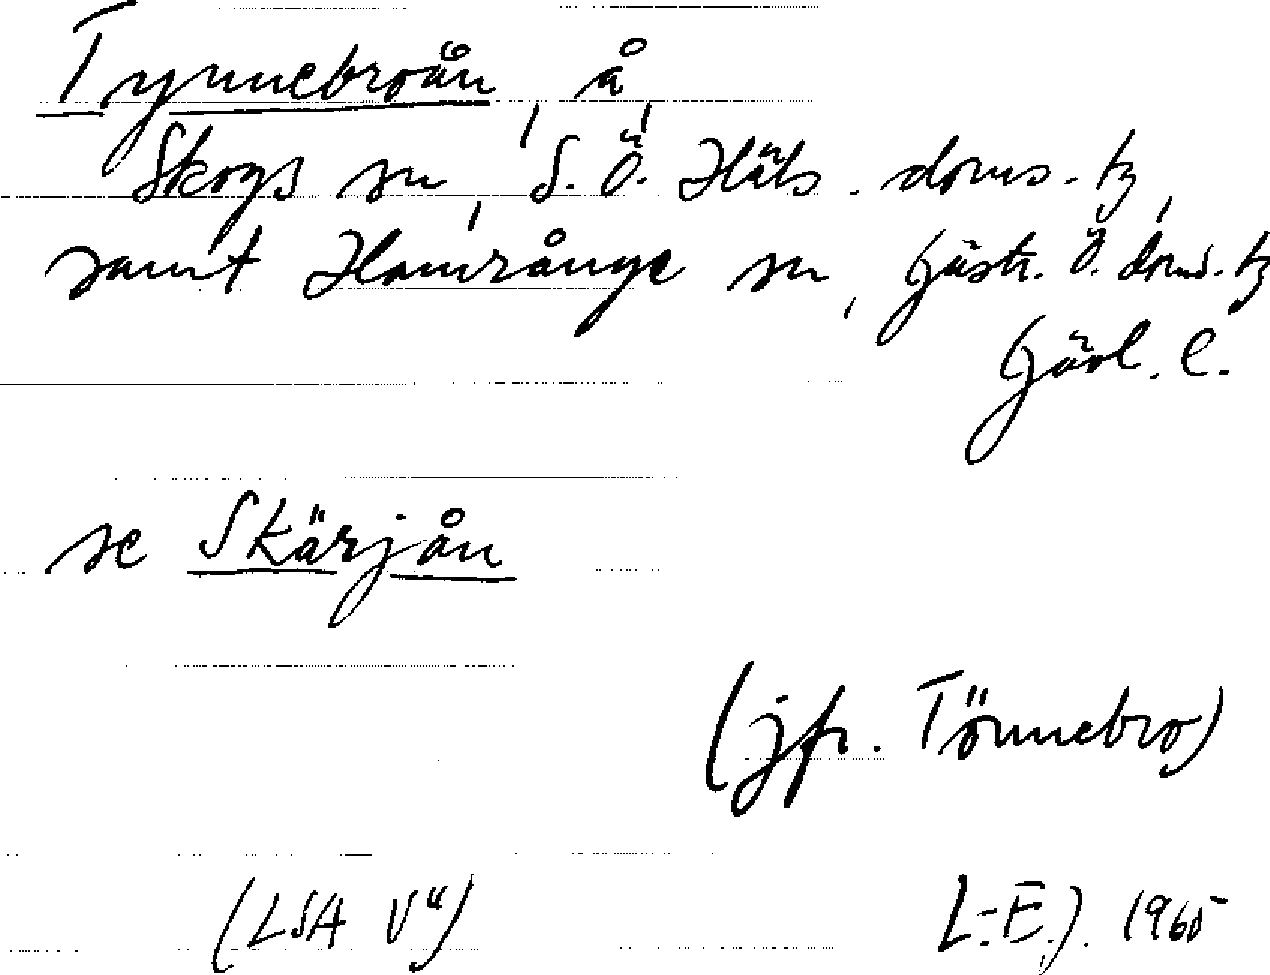 Tynnebroån, å,
Skogs sn, S. Ö. Häls. doms.-tg,
samt Hamrånge sn, Gästr. Ö. doms.-tg
Gävl. l.
se Skärjån
(jfr. Tönnebro)
(LSA V4) L-E.J. 1965